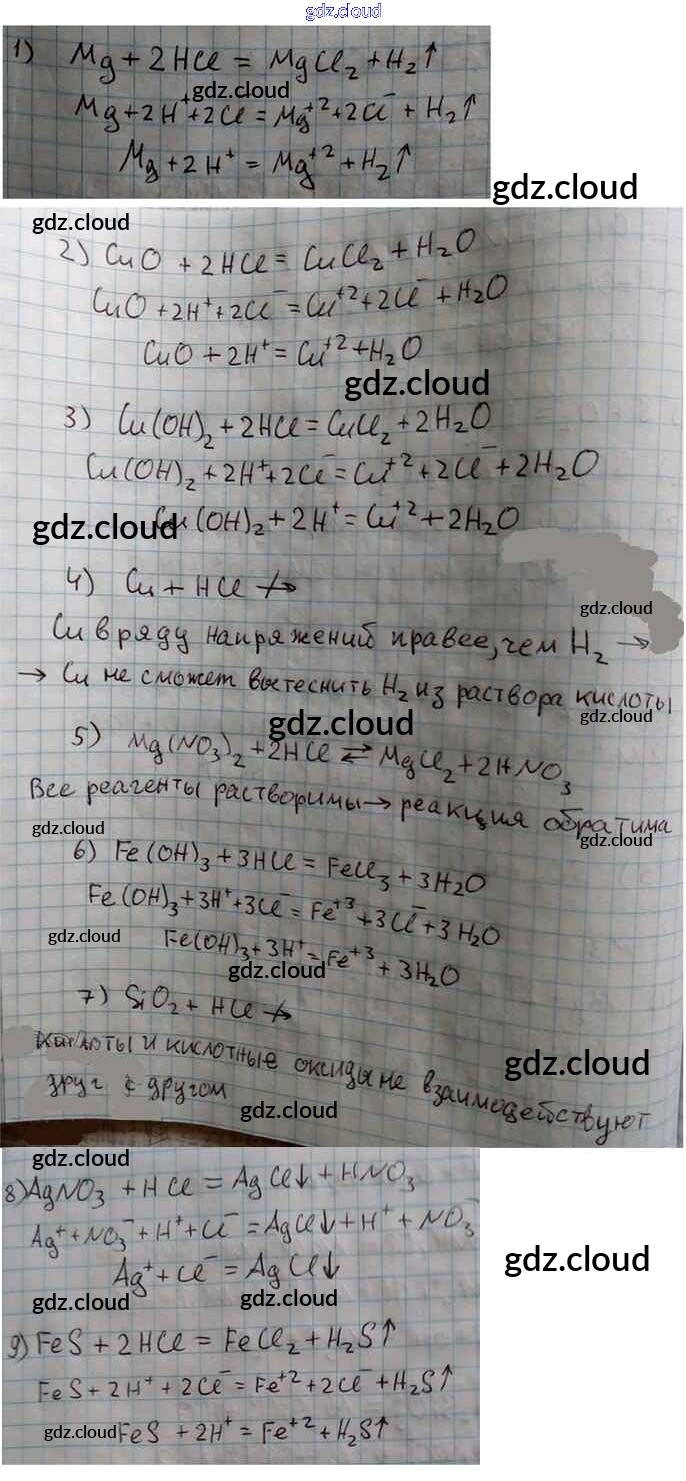 gdz.cloud
1) Mg + 2HCl = MgCl₂ + H₂↑
gdz.cloud
Mg + 2H⁺ + 2Cl = Mg⁺² + 2Cl⁻ + H₂↑
Mg + 2H⁺ = Mg⁺² + H₂↑
gdz.cloud
gdz.cloud
2) CuO + 2HCl = CuCl₂ + H₂O
CuO + 2H⁺ + 2Cl⁻ = Cu⁺² + 2Cl⁻ + H₂O
CuO + 2H⁺ = Cu⁺² + H₂O
gdz.cloud
3) Cu(OH)₂ + 2HCl = CuCl₂ + 2H₂O
Cu(OH)₂ + 2H⁺ + 2Cl⁻ = Cu⁺² + 2Cl⁻ + 2H₂O
Cu(OH)₂ + 2H⁺ = Cu⁺² + 2H₂O
gdz.cloud
4) Cu + HCl ↛
gdz.cloud
Cu в ряду напряжений правее, чем H₂ →
→ Cu не сможет вытеснить H₂ из раствора кислоты
gdz.cloud
gdz.cloud
5) Mg(NO₃)₂ + 2HCl ⇄ MgCl₂ + 2HNO₃
Все реагенты растворимы → реакция обратима
gdz.cloud
gdz.cloud
6) Fe(OH)₃ + 3HCl = FeCl₃ + 3H₂O
Fe(OH)₃ + 3H⁺ + 3Cl⁻ = Fe⁺³ + 3Cl⁻ + 3H₂O
gdz.cloud
Fe(OH)₃ + 3H⁺ = Fe⁺³ + 3H₂O
gdz.cloud
7) SiO₂ + HCl ↛
Кислоты и кислотные оксиды не взаимодействуют
друг с другом
gdz.cloud
gdz.cloud
gdz.cloud
8) AgNO₃ + HCl = AgCl↓ + HNO₃
Ag⁺ + NO₃⁻ + H⁺ + Cl⁻ = AgCl↓ + H⁺ + NO₃⁻
Ag⁺ + Cl⁻ = AgCl↓
gdz.cloud
gdz.cloud
gdz.cloud
9) FeS + 2HCl = FeCl₂ + H₂S↑
FeS + 2H⁺ + 2Cl⁻ = Fe⁺² + 2Cl⁻ + H₂S↑
gdz.cloud
FeS + 2H⁺ = Fe⁺² + H₂S↑